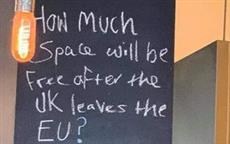 How Much
Space will be
Free after the
UK leaves the
EU?